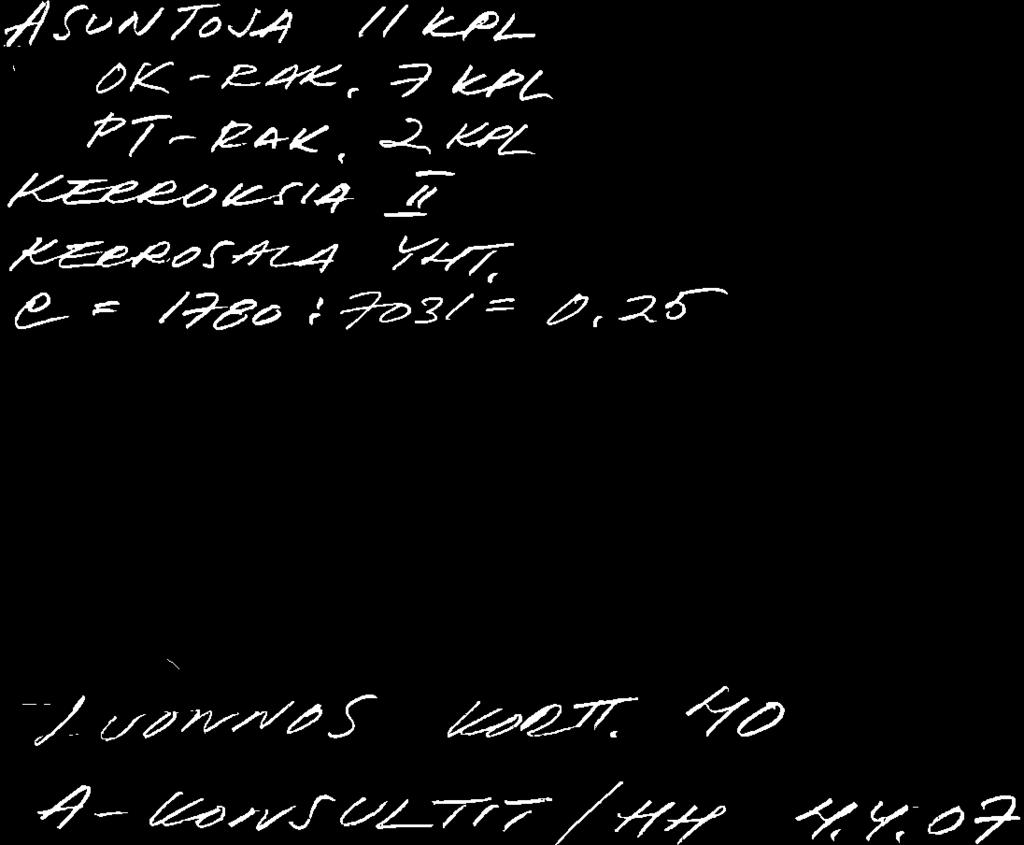 ASUNTOJA 11 KPL
OK-RAK. 7 KPL
PT-RAK. 2 KPL
KERROKSIA II
KERROSALA YHT.
e = 1780 : 7031 = 0.25
LUONNOS KORTT. 40
A-KONSULTIT / HH 4.4.07